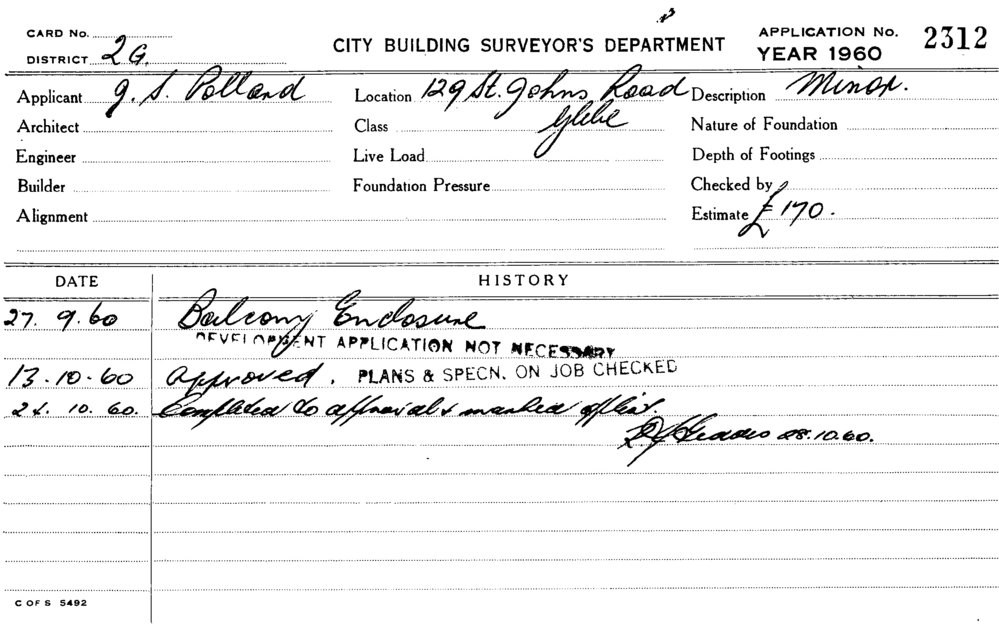 CARD No.
DISTRICT 2G.
CITY BUILDING SURVEYOR'S DEPARTMENT
APPLICATION No. 2312
YEAR 1960
Applicant J. S. Polland Location 129 St. Johns Road Description Minor.
Architect Class Glebe Nature of Foundation
Engineer Live Load Depth of Footings
Builder Foundation Pressure Checked by
Alignment Estimate £170.
DATE HISTORY
27. 9. 60 Balcony Enclosure
DEVELOPMENT APPLICATION NOT NECESSARY
13. 10. 60 Approved. PLANS & SPECN. ON JOB CHECKED
24. 10. 60. Completed to approval & marked off list.
28.10.60.
C OF S 5492